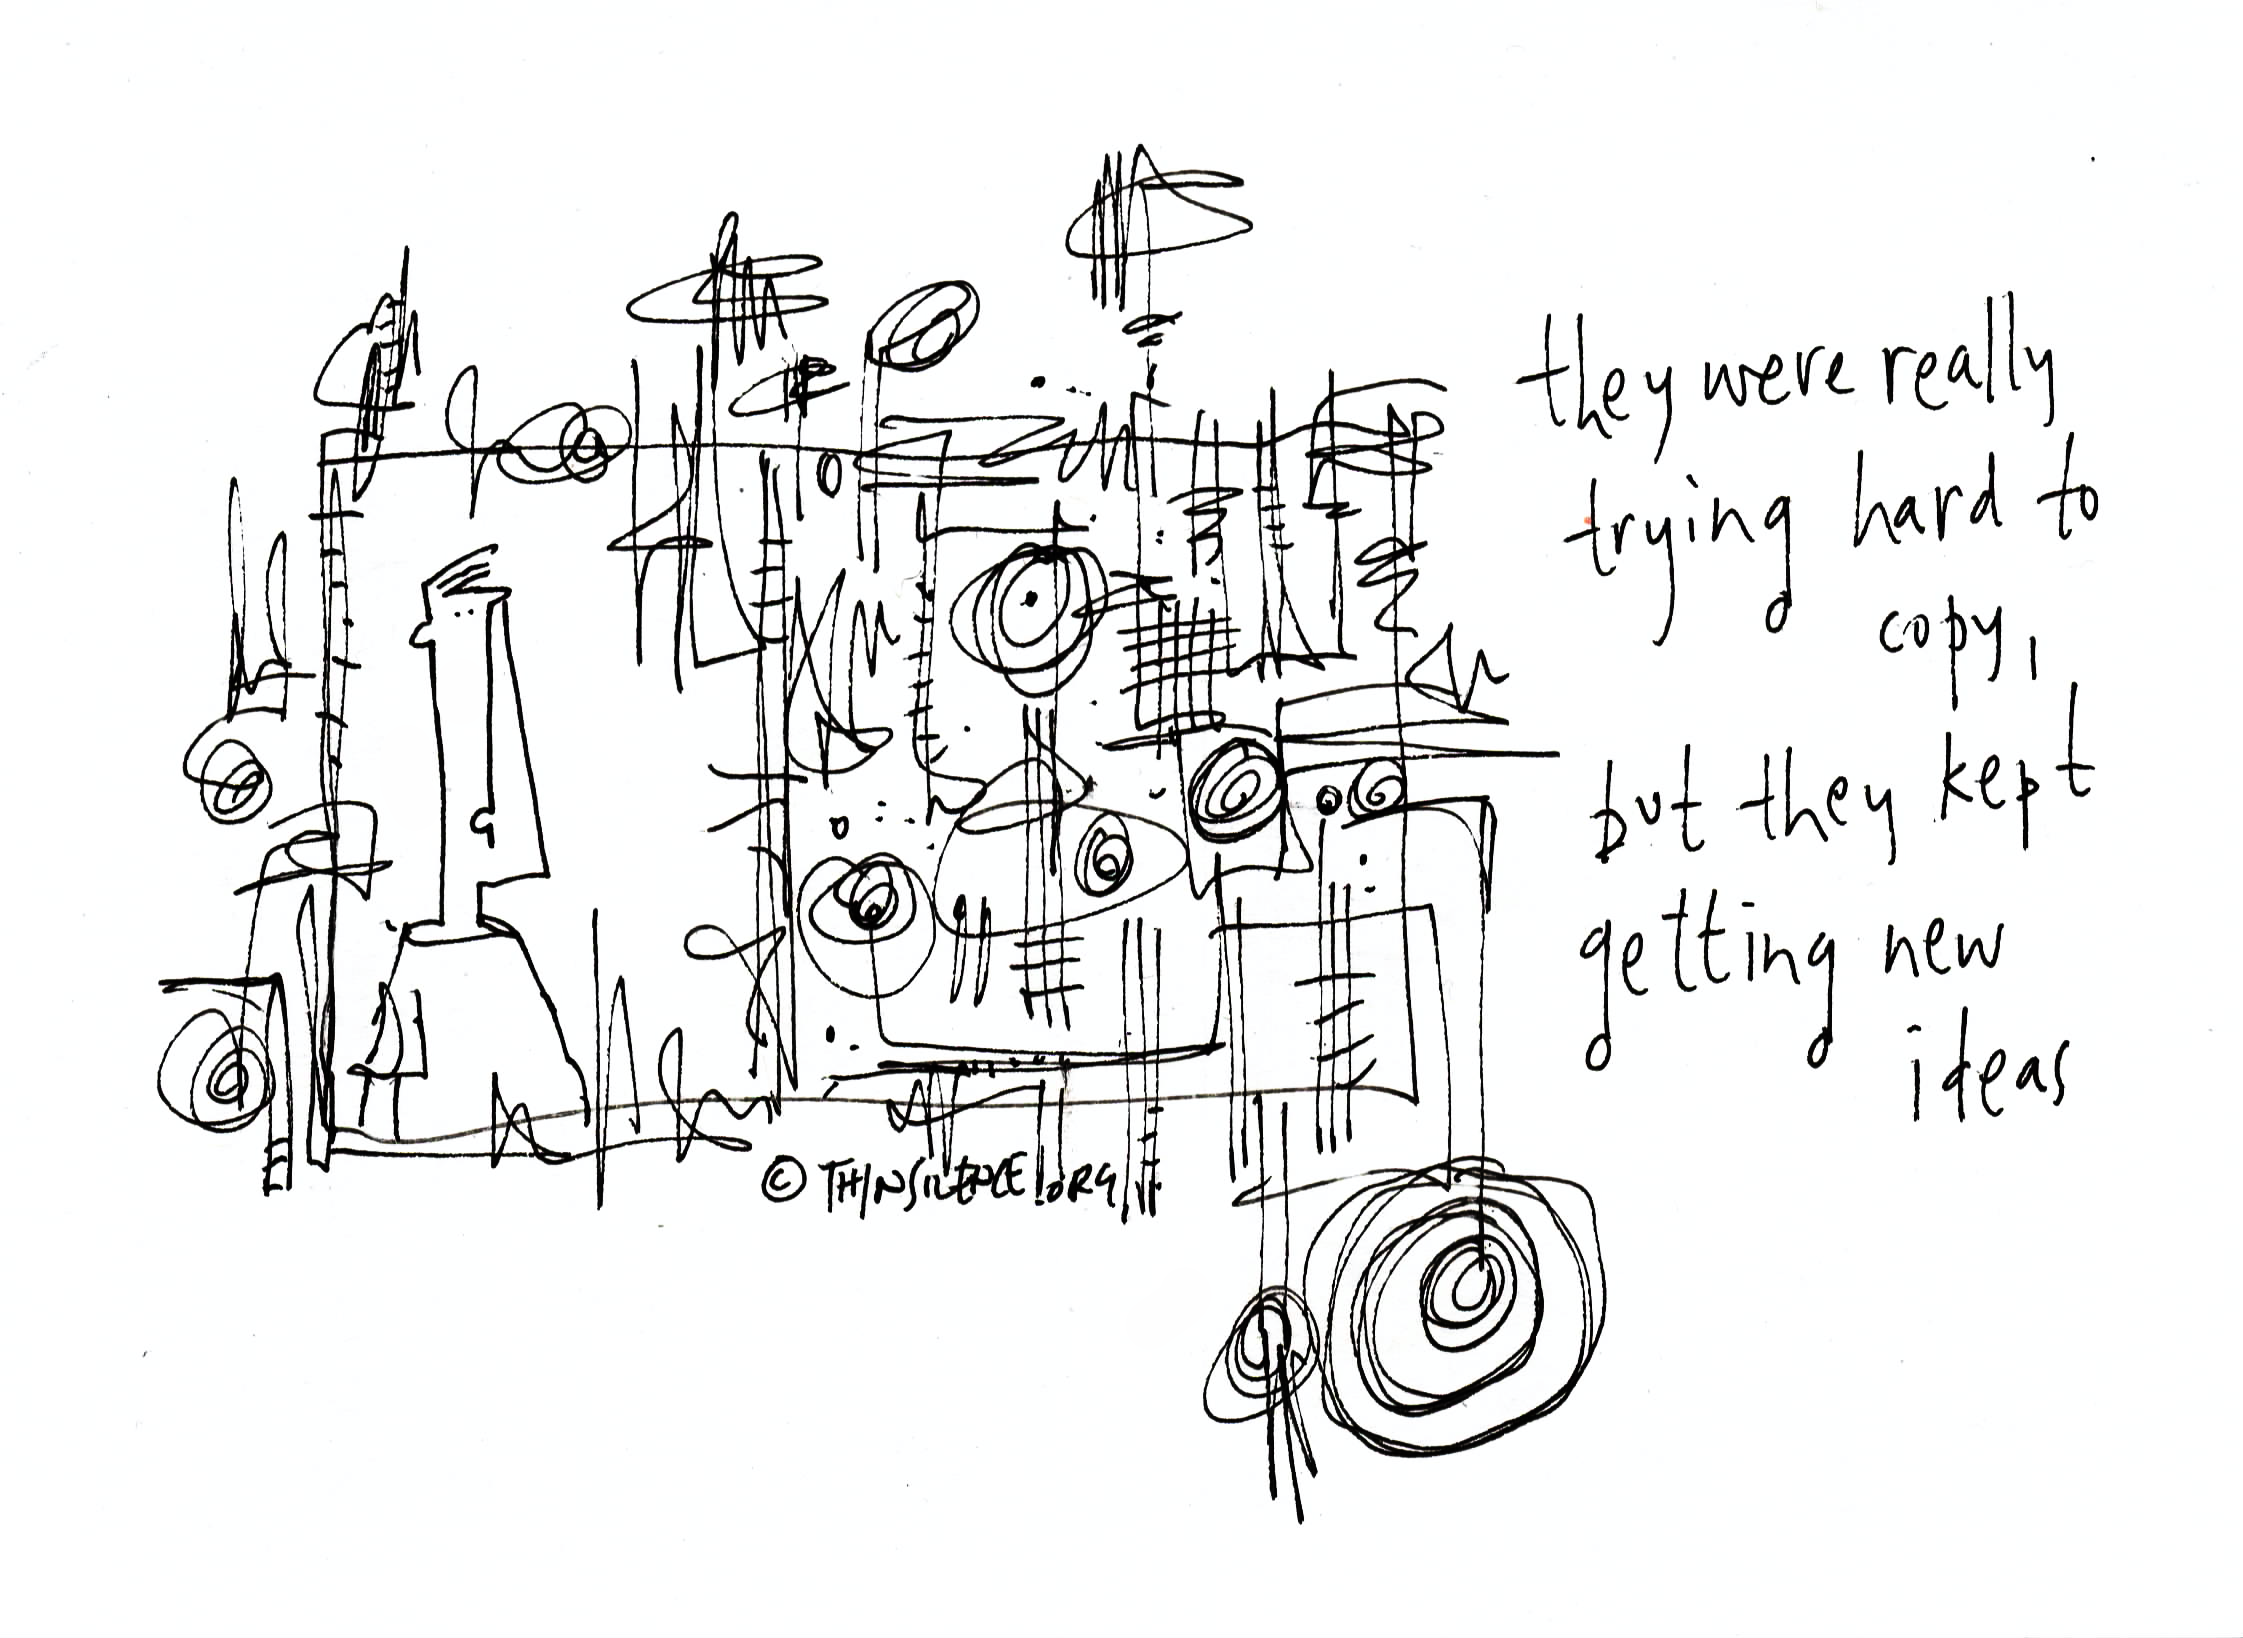 they were really
trying hard to
copy,
but they kept
getting new
ideas
© THINSILENCE.ORG